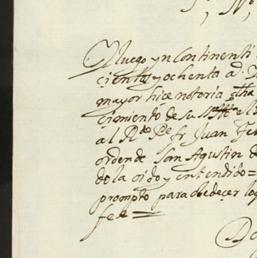 Y luego yncontinenti
ciento y ochenta a
mayor hice notoria otra
cimiento de su
al R.do P.e fr Juan
orden de San Agustin d
dola oido y entendido =
prompto para obedecer lo
fee =